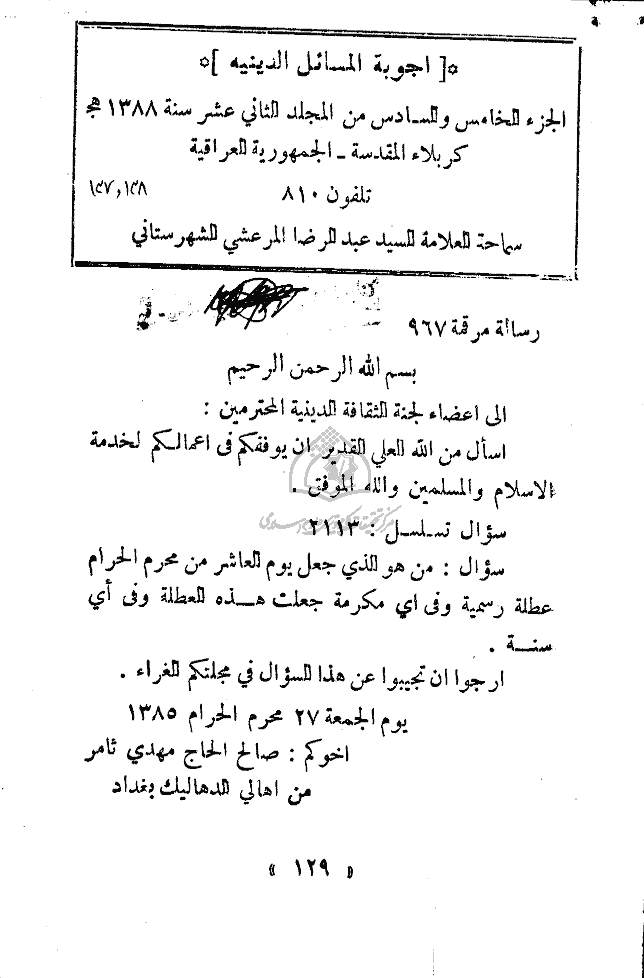 ☼[ اجوبة المسائل الدينيه ]☼
الجزء الخامس والسادس من المجلد الثاني عشر سنة ١٣٨٨ هج
كربلاء المقدسة ـ الجمهورية العراقية
تلفون ٨١٠
سماحة العلامة السيد عبد الرضا المرعشي الشهرستاني
رسالة مرقمة ٩٦٧
بسم الله الرحمن الرحيم
الى اعضاء لجنة الثقافة الدينية المحترمين :
اسأل من الله العلي القدير ان يوفقكم فى اعمالكم لخدمة
الاسلام والمسلمين والله الموفق .
سؤال تسلسل : ٢١١٣
سؤال : من هو الذي جعل يوم العاشر من محرم الحرام
عطلة رسمية وفى اي مكرمة جعلت هذه العطلة وفى أي
سنة .
ارجوا ان تجيبوا عن هذا السؤال في مجلتكم الغراء .
يوم الجمعة ٢٧ محرم الحرام ١٣٨٥
اخوكم : صالح الحاج مهدي ثامر
من اهالي الدهاليك بغداد
« ١٢٩ »